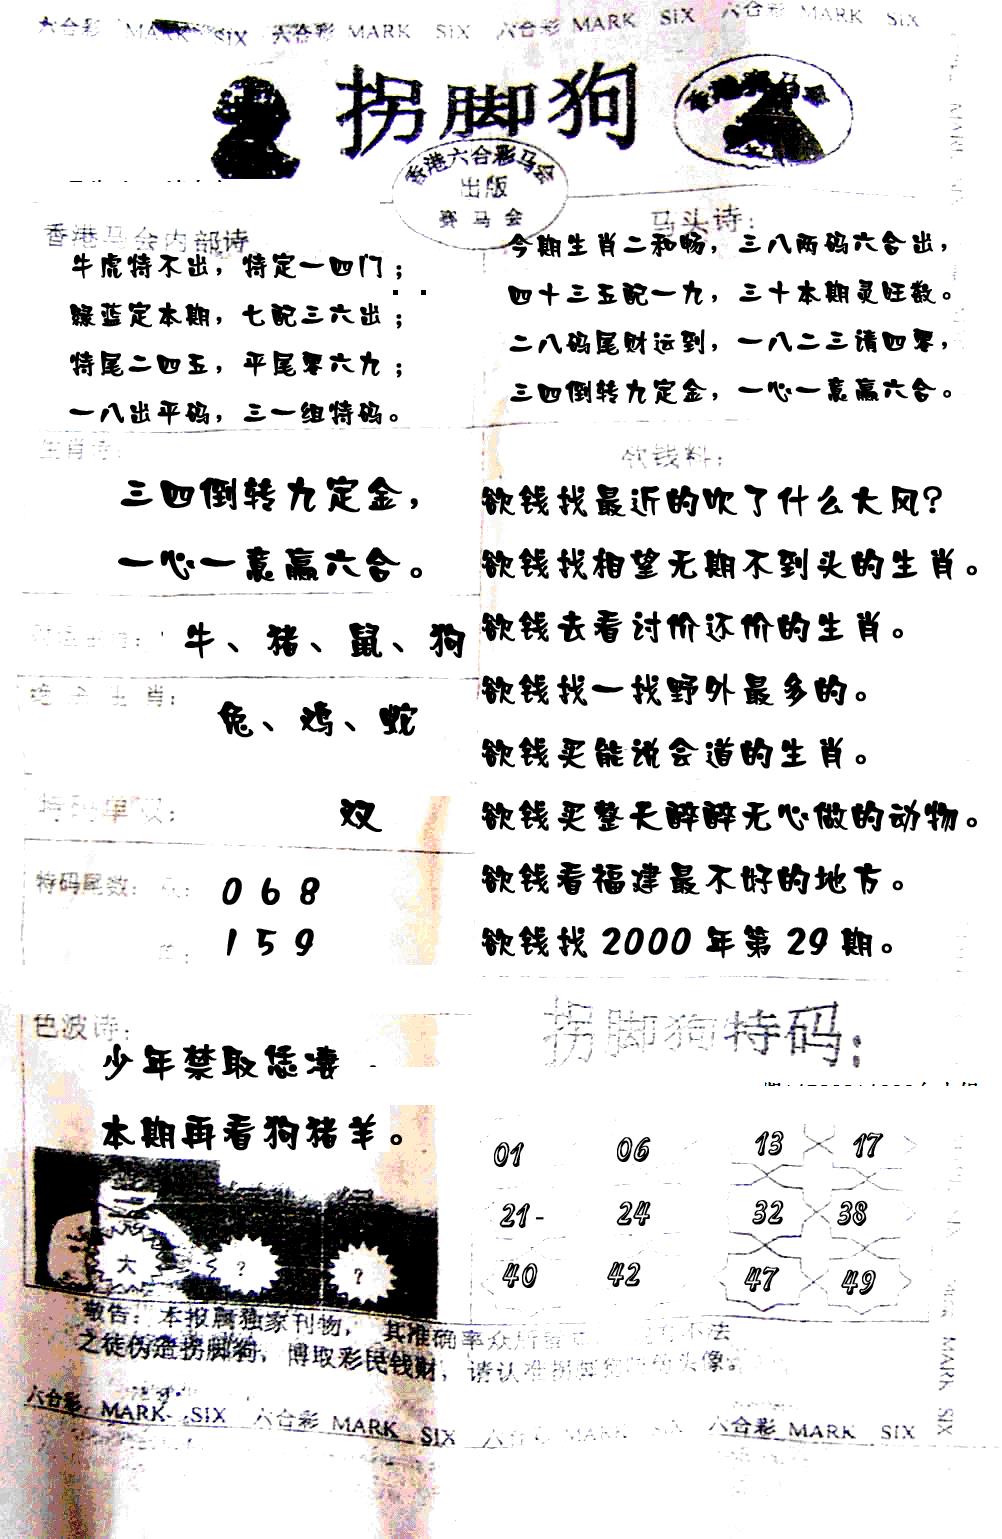 六合彩 MARK SIX 六合彩 MARK SIX 六合彩 MARK SIX 六合彩 MARK SIX
拐脚狗
香港六合彩马会
出版
赛马会
香港马会内部诗
牛虎特不出，特定一四门；
绿蓝定本期，七配三六出；
特尾二四五，平尾零六九；
一八出平码，三一组特码。
马头诗：
今期生肖二和畅，三八两码六合出，
四十三五配一九，三十本期灵旺数。
二八码尾财运到，一八二三请四零，
三四倒转九定金，一心一意赢六合。
生肖诗：
三四倒转九定金，
一心一意赢六合。
牛、猪、鼠、狗
生肖：
兔、鸡、蛇
特码单双：
双
特码尾数：
0 6 8
1 5 9
欲钱料：
欲钱找最近的吹了什么大风？
欲钱找相望无期不到头的生肖。
欲钱去看讨价还价的生肖。
欲钱找一找野外最多的。
欲钱买能说会道的生肖。
欲钱买整天醉醉无心做的动物。
欲钱看福建最不好的地方。
欲钱找 2000 年第 29 期。
色波诗：
少年禁取恁凄
本期再看狗猪羊。
大 ？ ？
拐脚狗特码：
01 06 13 17
21- 24 32 38
40 42 47 49
敬告：本报属独家刊物，其准确率众所 不法
之徒伪造拐脚狗，博取彩民钱财，请认准拐脚 头像。
六合彩 MARK SIX 六合彩 MARK SIX 六合彩 MARK SIX 六合彩 MARK SIX
MARK SIX